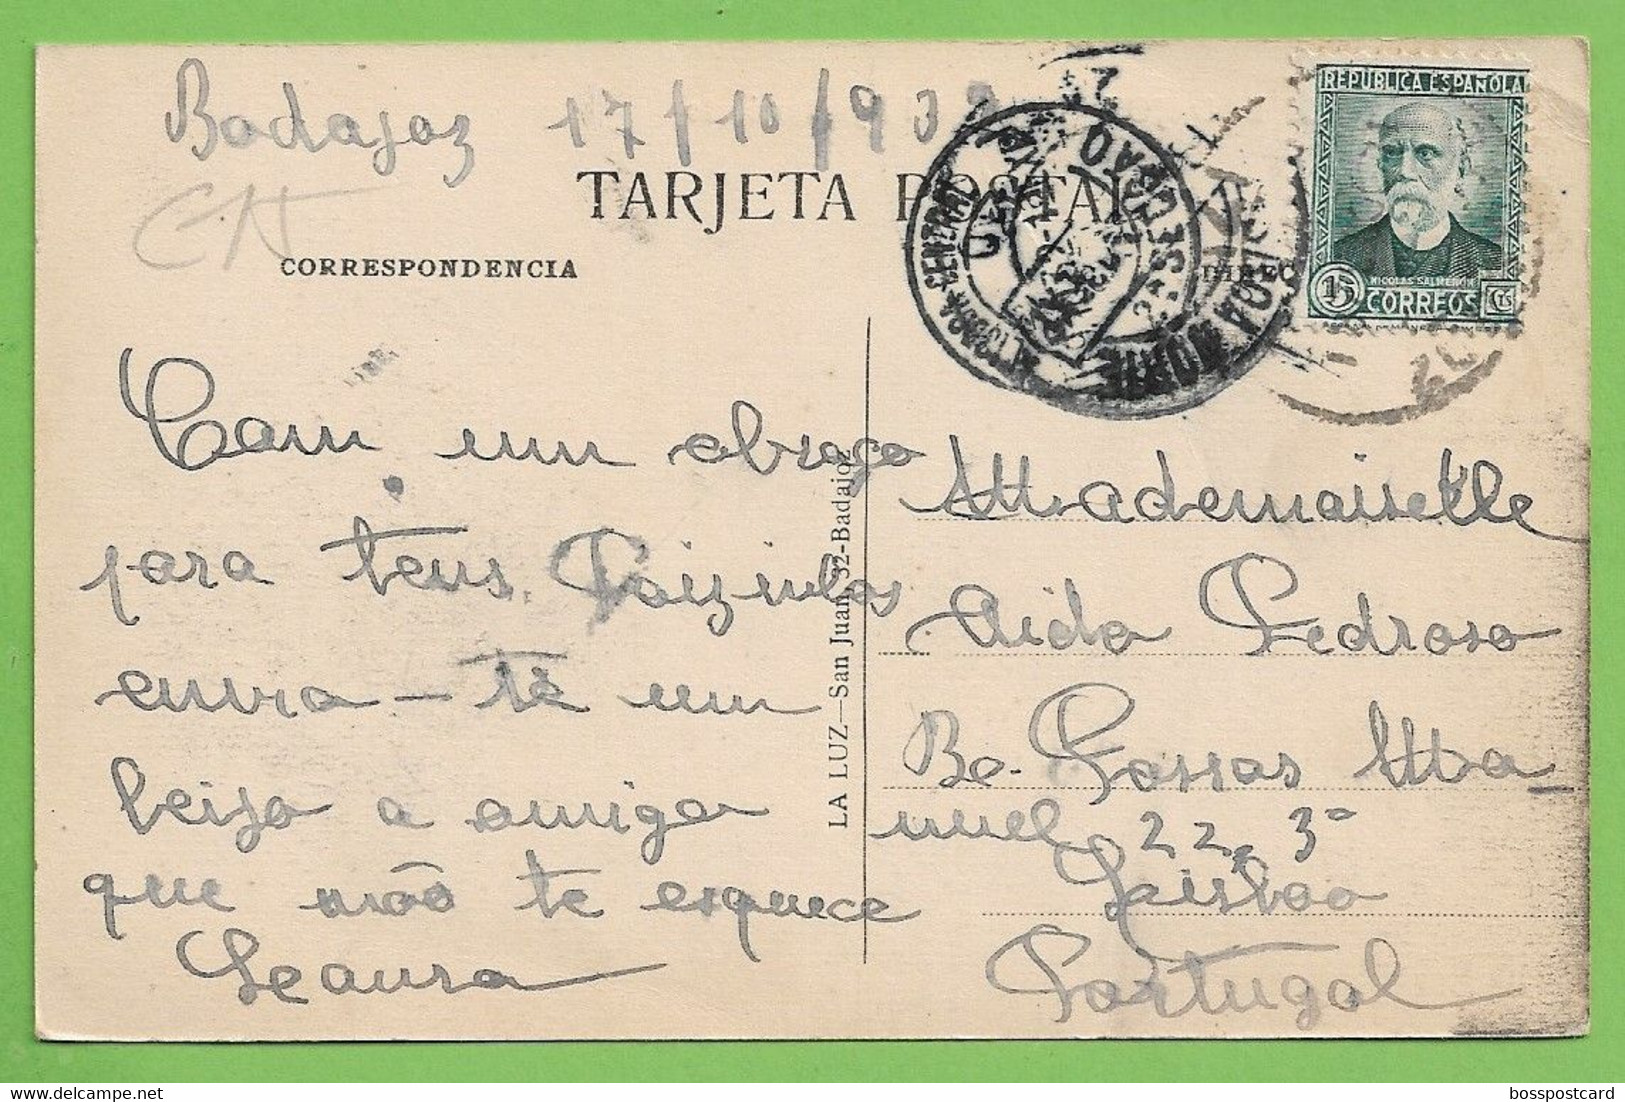 Badajoz 17/10/93
CN
TARJETA POSTAL
CORRESPONDENCIA
REPUBLICA ESPAÑOLA
NICOLAS SALMERON
15 CORREOS Cts
NORTE
Com um abraço
para teus Paizinhos
envia-te um
beijo a amiga
que não te esquece
Leaura
LA LUZ—San Juan, 32-Badajoz
Mademaiselle
Aida Pedroso
Be. Passos Ma
nuel 22, 3º
Lisboa
Portugal
bosspostcard